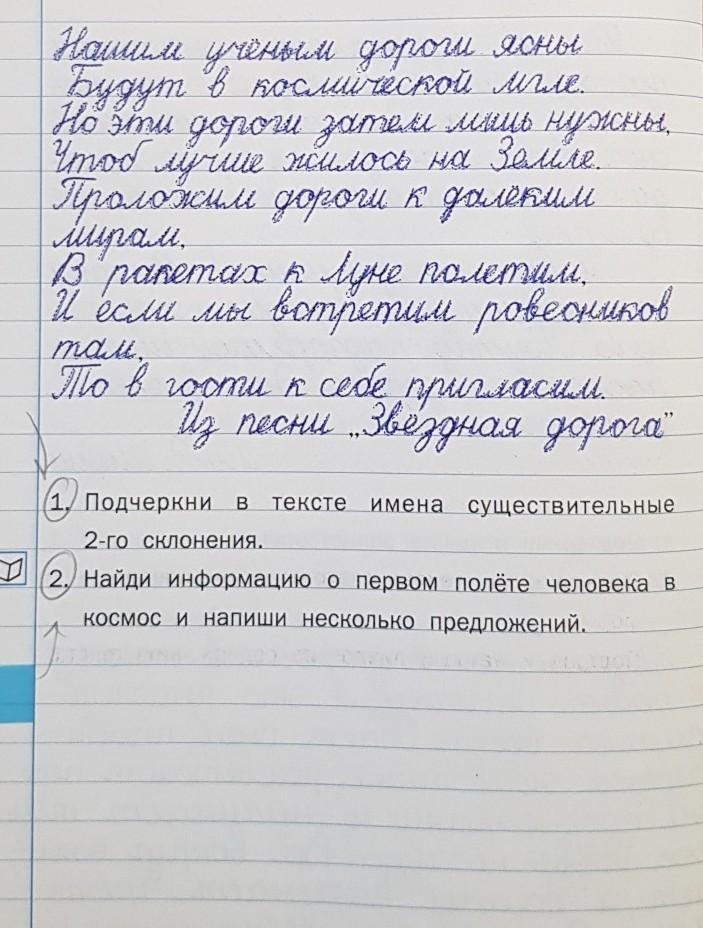 Нашим учёным дороги ясны
Будут в космической мгле.
Но эти дороги затем лишь нужны,
Чтоб лучше жилось на Земле.
Проложим дороги к далёким
мирам,
В ракетах к Луне полетим,
И если мы встретим ровесников
там,
То в гости к себе пригласим.
Из песни „Звёздная дорога"
1. Подчеркни в тексте имена существительные
2-го склонения.
2. Найди информацию о первом полёте человека в
космос и напиши несколько предложений.